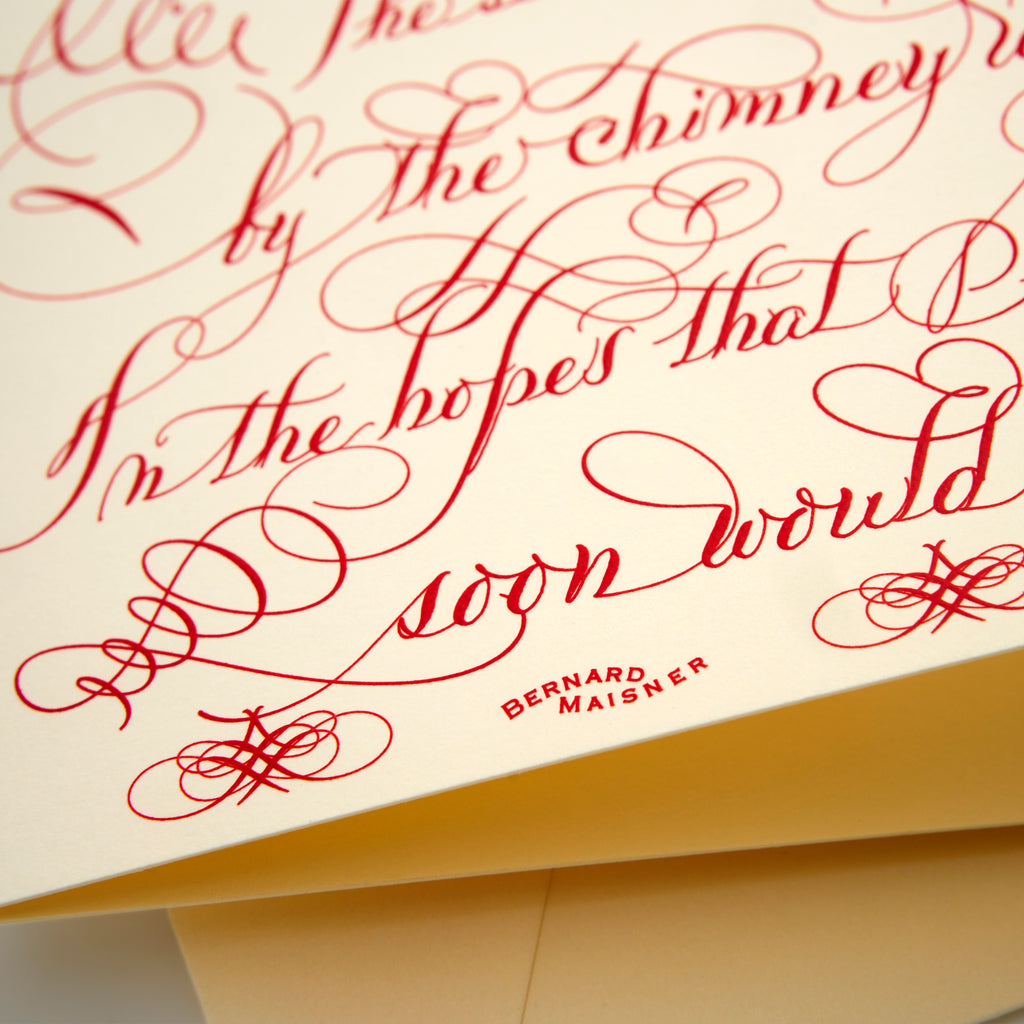 The
by the chimney
In the hopes that
soon would
BERNARD
MAISNER